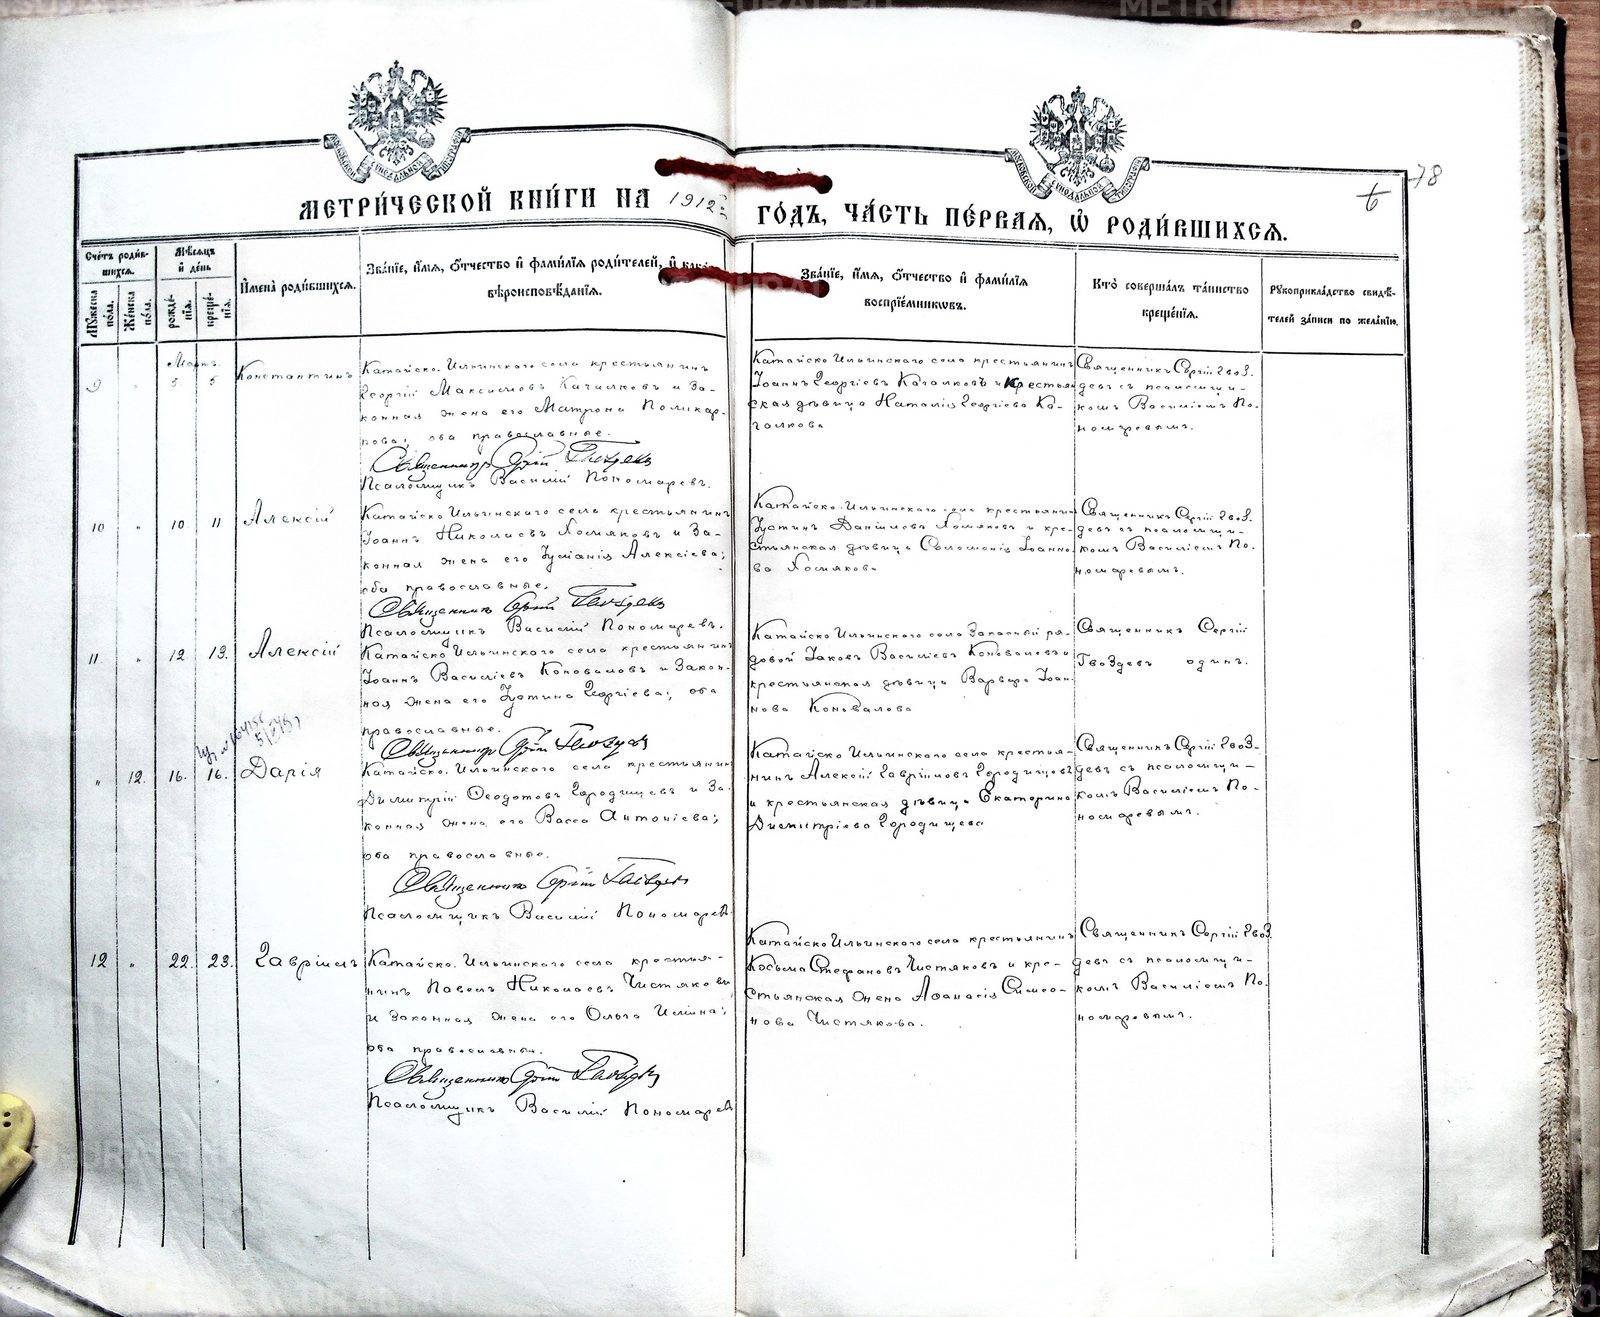 МЕТРИ́ЧЕСКОЙ КНИ́ГИ НА 1912 ГО́ДЪ, ЧА́СТЬ ПЕ́РВАЯ, Ѽ РОДИ́ВШИХСЯ.
78
Сче́тъ роди́в-
шихся.
Му́жеска
по́ла.
Же́нска
по́ла.
Мѣ́сяцъ
и҆ де́нь
рожде́-
нїя.
креще́-
нїя.
И҆мена̀ роди́вшихся.
Зва́нїе, и҆́мя, ѻ҆́тчество и҆ фами́лїя роди́телей, и҆ како́
вѣроисповѣ́данїя.
Зва́нїе, и҆́мя, ѻ҆́тчество и҆ фами́лїя
воспрїе́мниковъ.
Кто̀ соверша́лъ та́инство
креще́нїя.
Рꙋкоприкла́дство свидѣ́-
телей за́писи по жела́нїю.
Мартъ
9 " 5 5 Константинъ
Катайско-Ильинскаго села крестьянинъ
Георгій Максимовъ Качалковъ и За-
конная жена его Матрона Поликар-
пова; оба православные.
Священникъ Сергій Гвоздевъ
Псаломщикъ Василій Пономаревъ.
Катайско-Ильинскаго села крестьянинъ
Іоаннъ Георгіевъ Качалковъ и крестьян
ская дѣвица Наталія Георгіева Ка-
чалкова
Священникъ Сергій Гвоз.
девъ съ псаломщи-
комъ Василіемъ По-
номаревымъ.
10 " 10 11 Алексій
Катайско-Ильинскаго села крестьянинъ
Іоаннъ Николаевъ Хомяковъ и За-
конная жена его Іуліанія Алексіева;
оба православные.
Священникъ Сергій Гвоздевъ
Псаломщикъ Василій Пономаревъ.
Катайско-Ильинскаго села крестьянинъ
Іустинъ Даніиловъ Хомяковъ и кре-
стьянская дѣвица Соломонія Іоанно-
ва Хомякова
Священникъ Сергій Гвоз.
девъ съ псаломщи-
комъ Василіемъ По-
номаревымъ.
11 " 12 13. Алексій
Катайско-Ильинскаго села крестьянинъ
Іоаннъ Василіевъ Коноваловъ и Закон-
ная жена его Іустина Георгіева; оба
православные.
Священникъ Сергій Гвоздевъ
Катайско-Ильинскаго села Запасный ря-
довой Іаковъ Василіевъ Коноваловъ и
крестьянская дѣвица Варвара Іоан-
нова Коновалова
Священникъ Сергій
Гвоздевъ одинъ.
" 12. 16. 16. Дарія
Катайско-Ильинскаго села крестьянинъ
Димитрій Ѳеодотовъ Городищевъ и За-
конная жена его Васса Антоніева;
оба православные.
Священникъ Сергій Гвоздевъ
Псаломщикъ Василій Пономаревъ
Катайско-Ильинскаго села крестья-
нинъ Алексій Гавріиловъ Городищевъ
и крестьянская дѣвица Екатерина
Димитріева Городищева
Священникъ Сергій Гвоз-
девъ съ псаломщи-
комъ Василіемъ По-
номаревымъ.
12 " 22. 23. Гавріилъ
Катайско-Ильинскаго села крестья-
нинъ Павелъ Николаевъ Чистяковъ
и Законная жена его Ольга Ильина;
оба православные.
Священникъ Сергій Гвоздевъ
Псаломщикъ Василій Пономаревъ
Катайско-Ильинскаго села крестьянинъ
Косьма Стефановъ Чистяковъ и кре-
стьянская жена Аѳанасія Симео-
нова Чистякова.
Священникъ Сергій Гвоз.
девъ съ псаломщи-
комъ Василіемъ По-
номаревымъ.